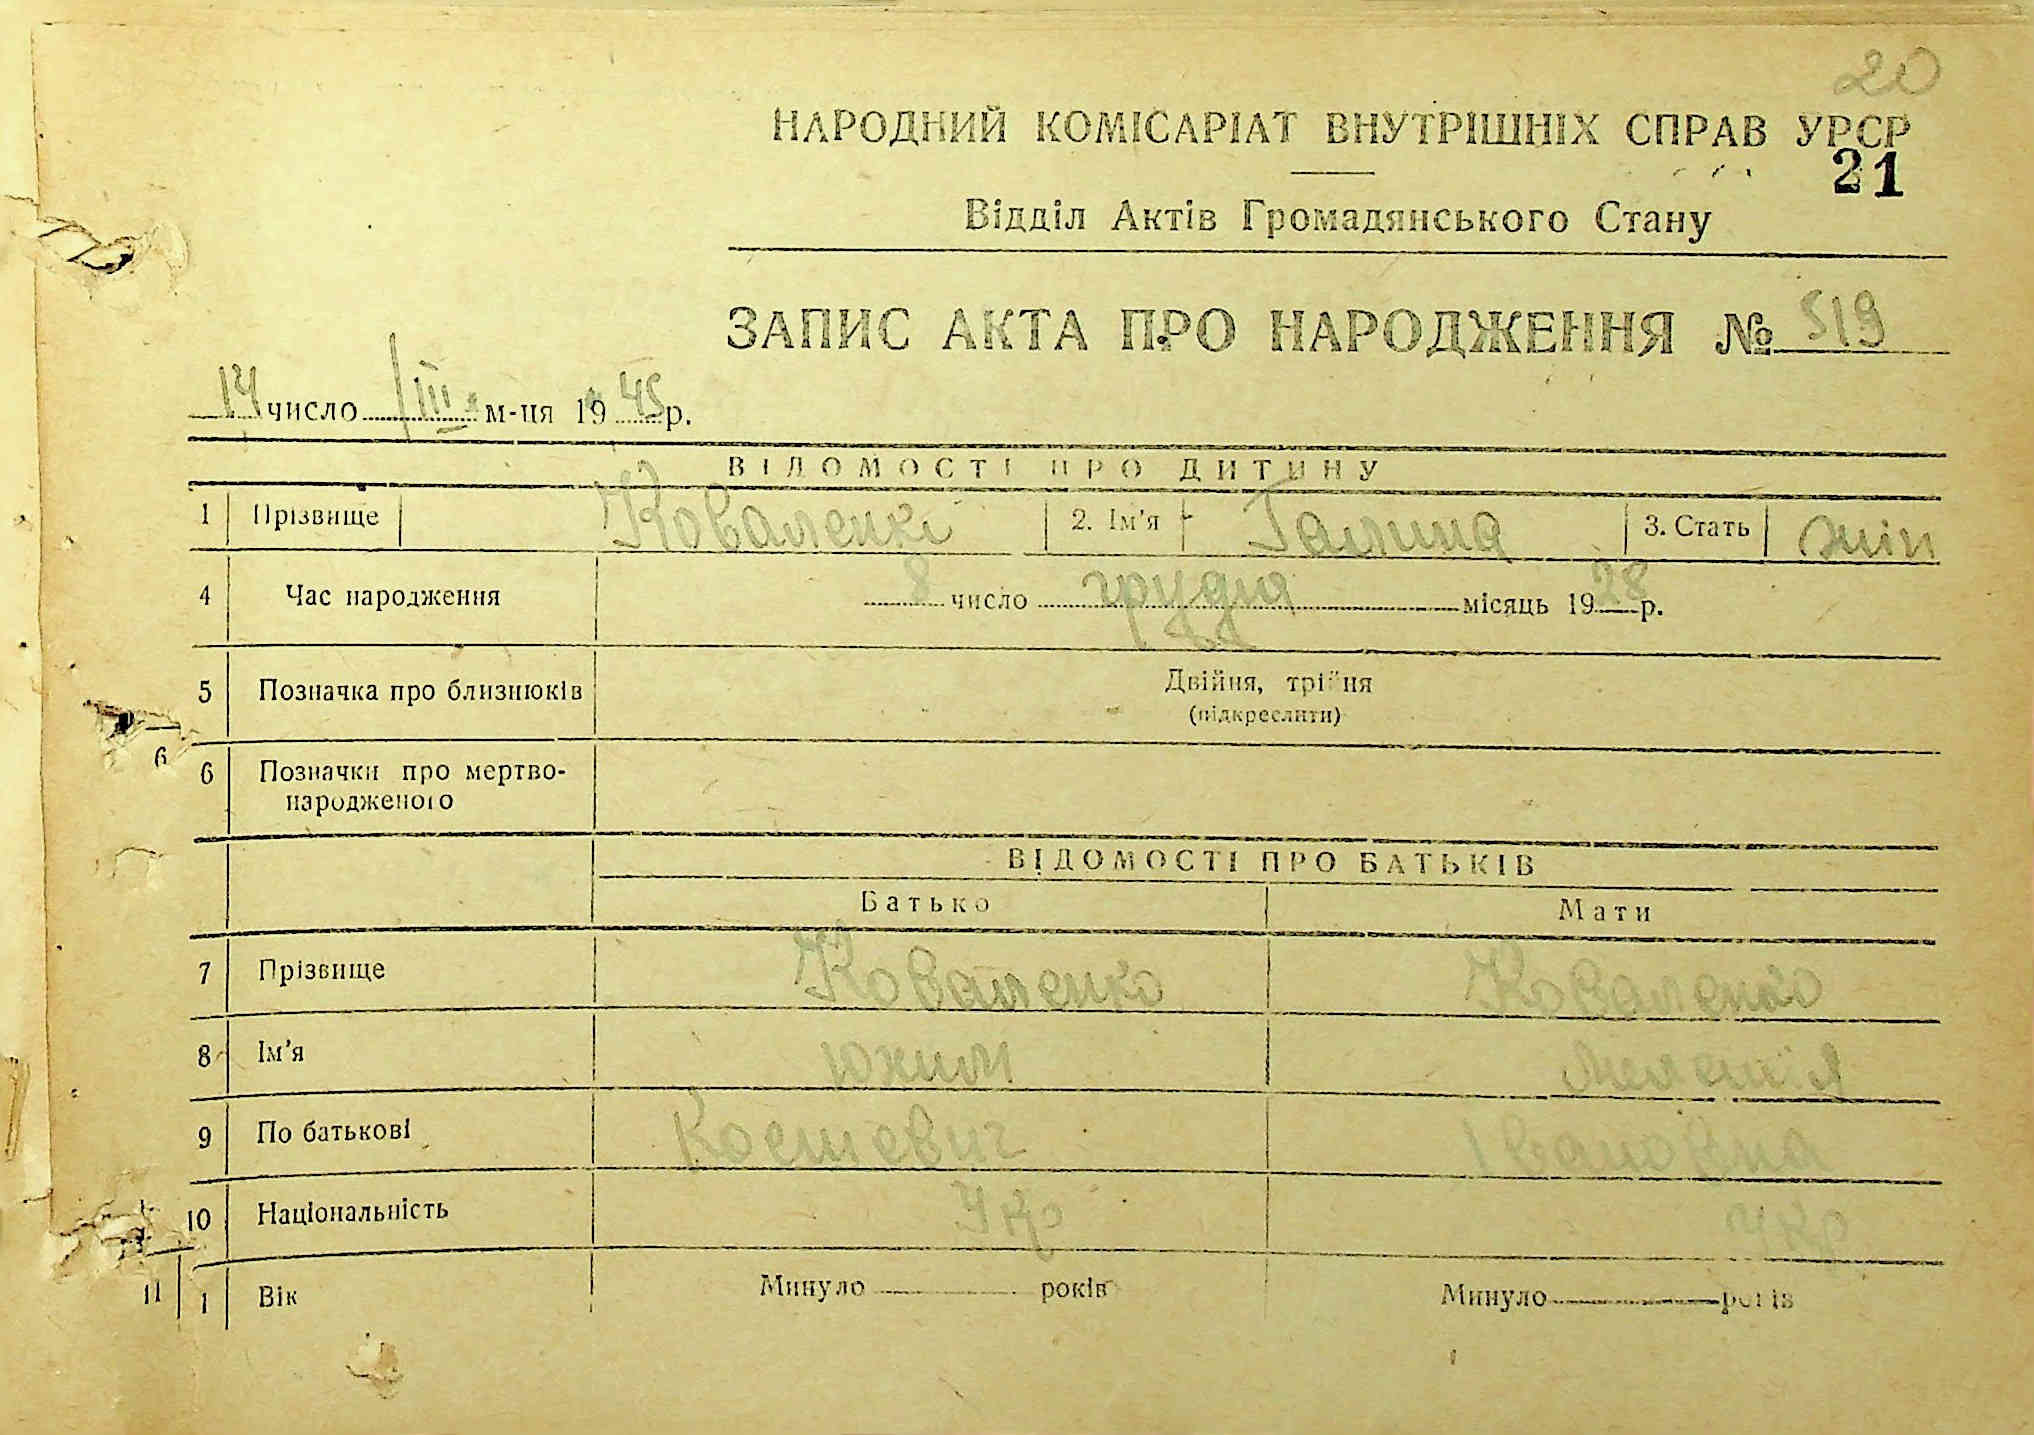 20
НАРОДНИЙ КОМІСАРІАТ ВНУТРІШНІХ СПРАВ УРСР
21
Відділ Актів Громадянського Стану
ЗАПИС АКТА ПРО НАРОДЖЕННЯ № 519
14 число III м-ця 1945 р.
ВІДОМОСТІ ПРО ДИТИНУ
1 Прізвище Коваленко 2. Ім'я Галина 3. Стать жін
4 Час народження 8 число грудня місяць 1928 р.
5 Позначка про близнюків Двійня, трійня
(підкреслити)
6 6 Позначки про мертво-
народженого
ВІДОМОСТІ ПРО БАТЬКІВ
Батько Мати
7 Прізвище Коваленко Коваленко
8 Ім'я Юхим
9 По батькові Івановна
10 Національність Укр Укр
11 1 Вік Минуло років Минуло років